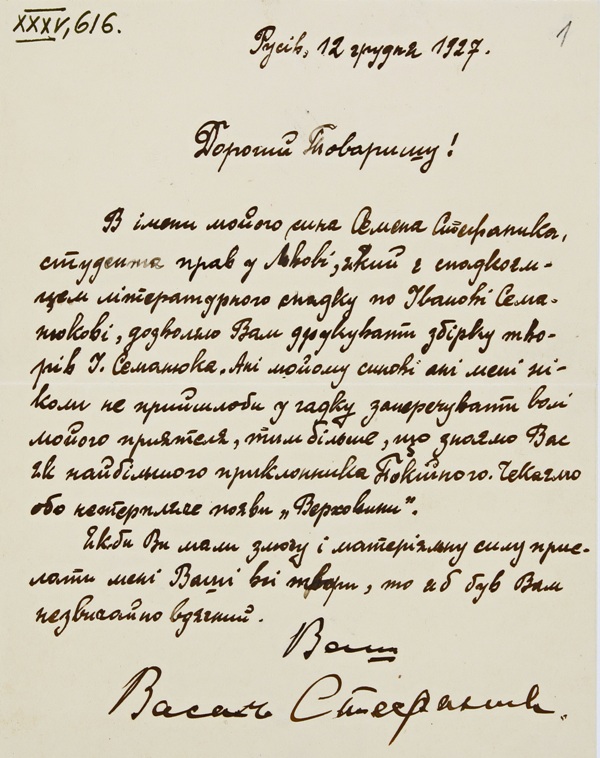 XXXV, 616.
1
Русів, 12 грудня 1927.
Дорогий Товаришу!
В імени мойого сина Семена Стефаника,
студента прав у Львові, який є спадкоєм-
цем літературного спадку по Іванові Сема-
нюкові, дозволяю Вам друкувати збірку тво-
рів І. Семанюка. Ані мойому синові ані мені ні-
коли не прийшлоби у гадку заперечувати волі
мойого приятеля, тим більше, що знаємо Вас
як найбільшого приклонника Покійного. Чекаємо
обо нетерпляче появи „Верховини".
Якби Ви мали змогу і матеріяльну силу прис-
лати мені Ваші всі твори, то я б був Вам
незвичайно вдячний.
Ваш
Василь Стефаник.